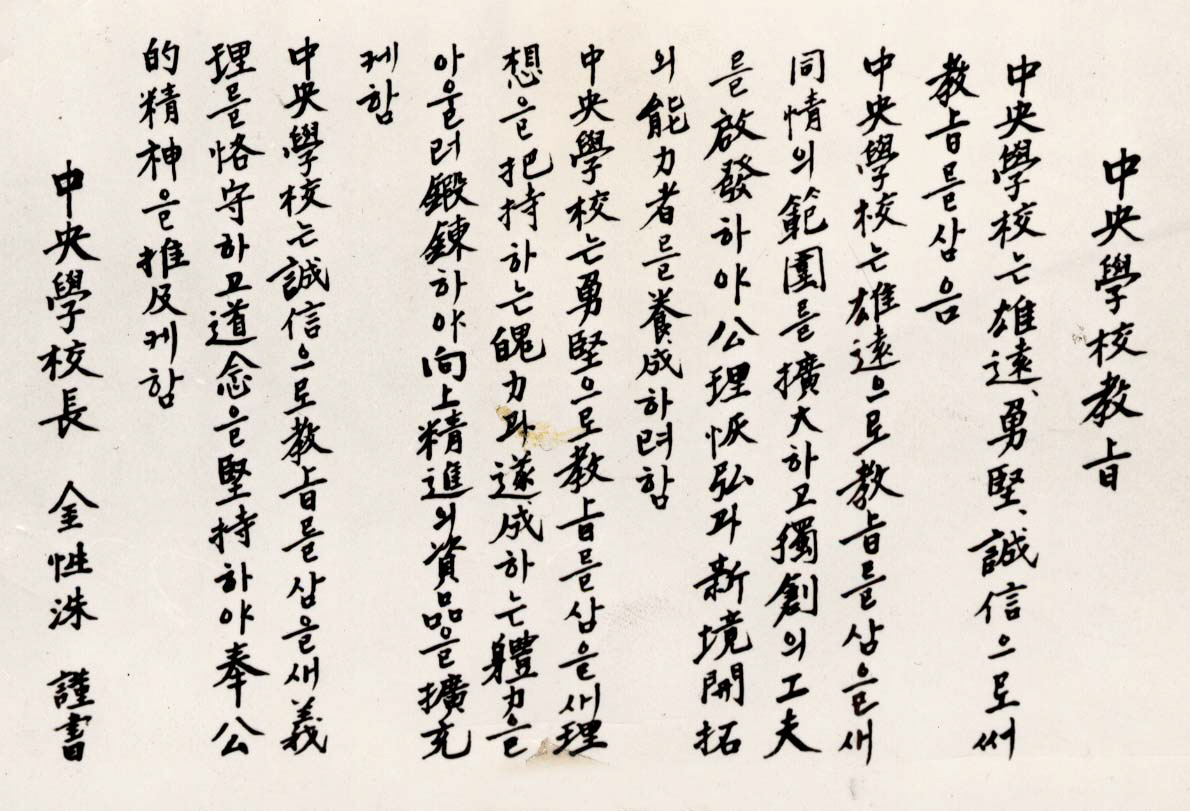 中央學校教旨
中央學校는 雄遠、勇堅、誠信으로써
教旨를삼음
中央學校는雄遠으로教旨를삼을새
同情의範圍를擴大하고獨創의工夫
를啟發하야公理恢弘과新境開拓
의能力者를養成하려함
中央學校는勇堅으로教旨를삼을새理
想을把持하는魄力과遂成하는軆力을
아울러鍛鍊하야向上精進의資品을擴充
케함
中央學校는誠信으로教旨를삼을새義
理를恪守하고道念을堅持하야奉公
的精神을推及케함
中央學校長 金性洙 謹書